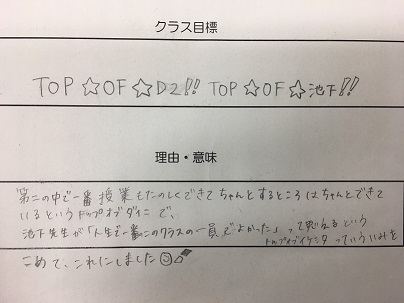 クラス目標
TOP☆OF☆D2!! TOP☆OF☆池下!!
理由・意味
第二の中で一番授業もたのしくできてちゃんとするところはちゃんとできて
いるというトップオブダイニで、
池下先生が「人生で一番このクラスの一員でよかった」って思えるという
トップオブイケシタっていういみを
こめて、これにしました